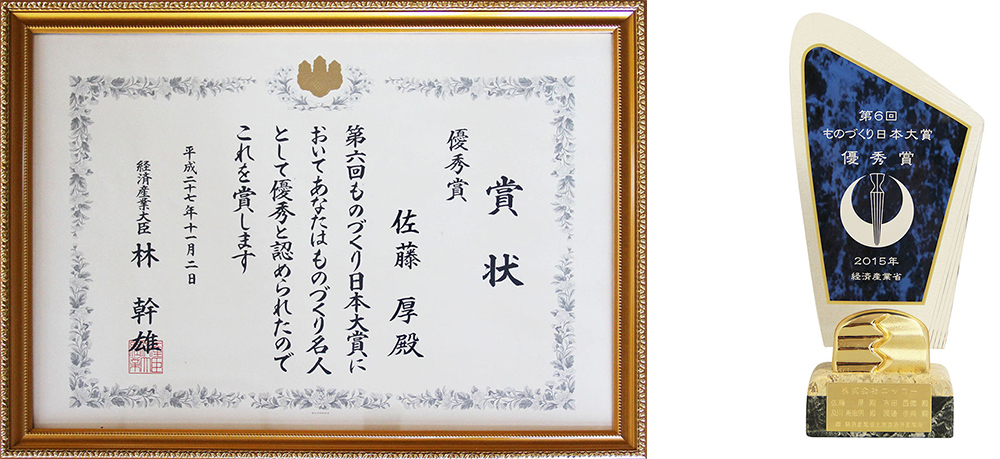 賞状
優秀賞
佐藤 厚殿
第六回ものづくり日本大賞に
おいてあなたはものづくり名人
として優秀と認められたので
これを賞します
平成二十七年十一月二日
経済産業大臣 林 幹雄
第6回
ものづくり日本大賞
優秀賞
2015年
経済産業省